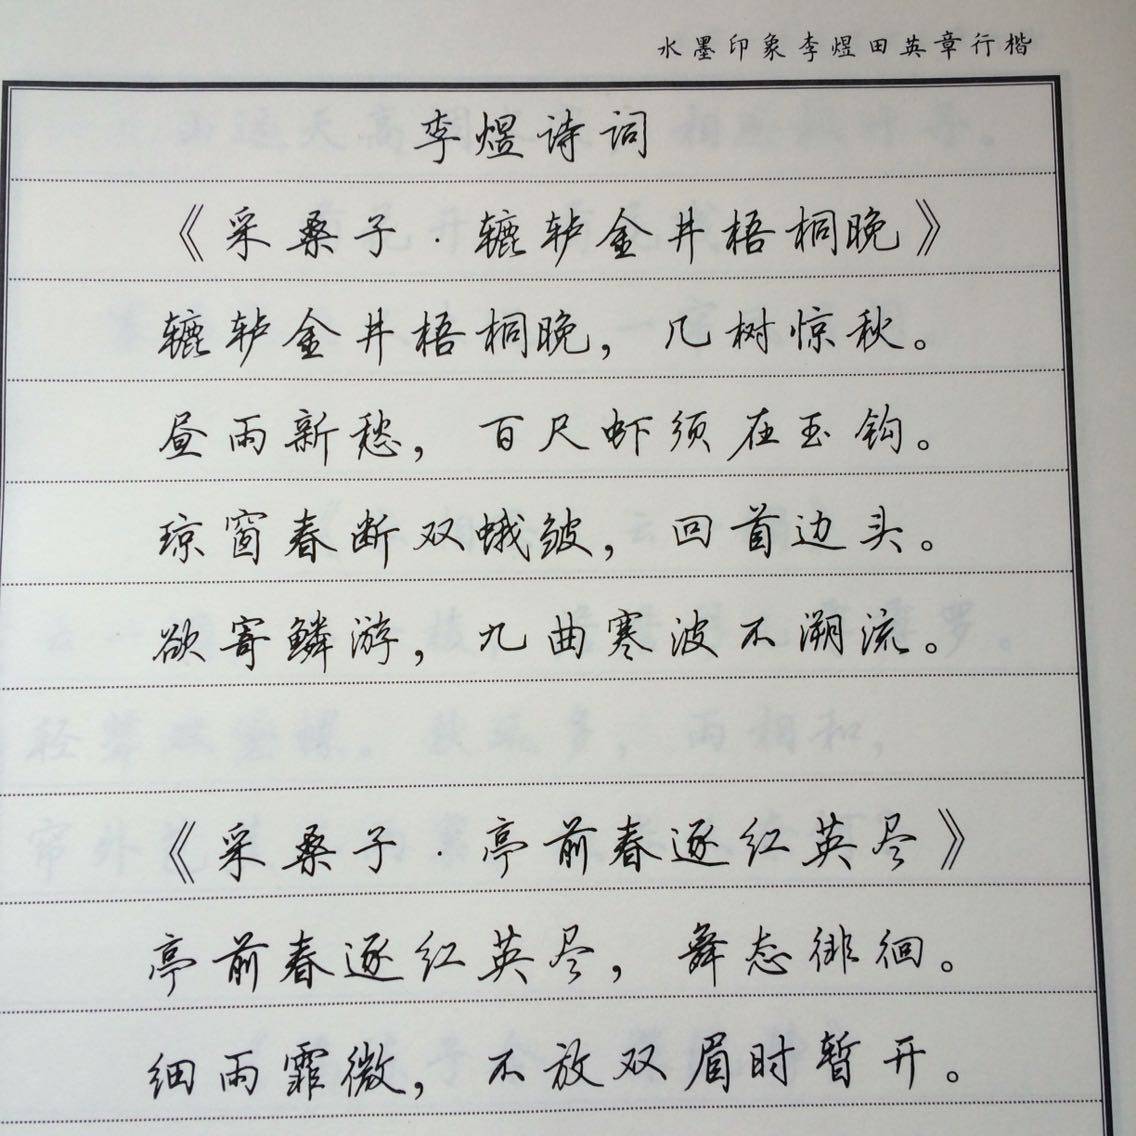 水墨印象李煜田英章行楷
李煜诗词
《采桑子·辘轳金井梧桐晚》
辘轳金井梧桐晚，几树惊秋。
昼雨新愁，百尺虾须在玉钩。
琼窗春断双蛾皱，回首边头。
欲寄鳞游，九曲寒波不溯流。
《采桑子·亭前春逐红英尽》
亭前春逐红英尽，舞态徘徊。
细雨霏微，不放双眉时暂开。